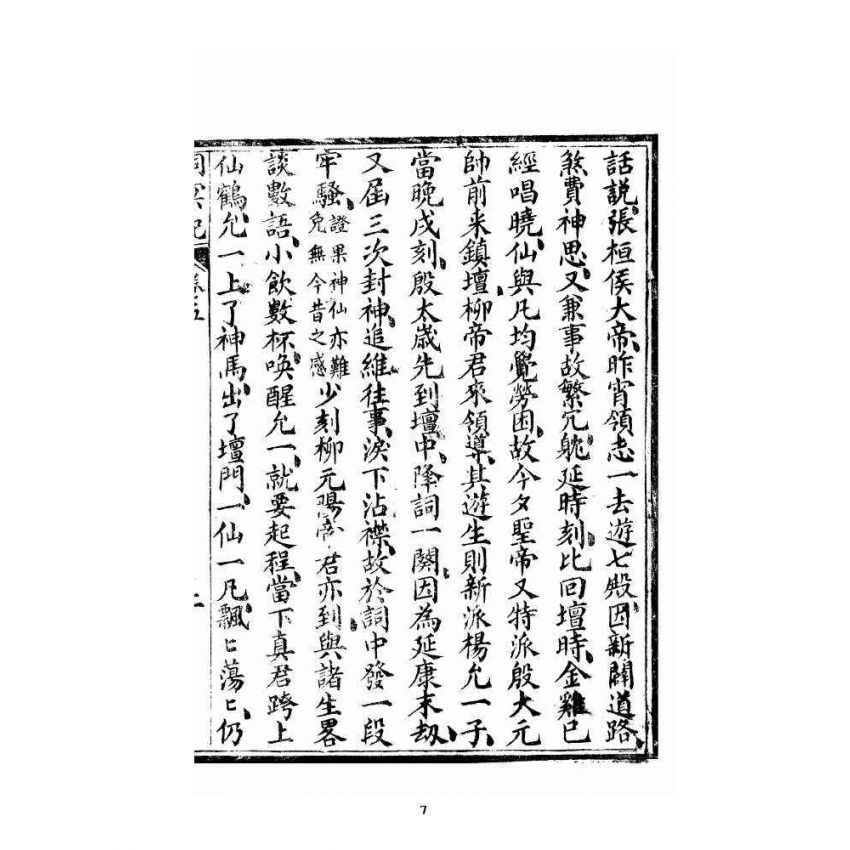 話說、張桓侯大帝、昨宵領志一去遊七殿、因新闢道路、
煞費神思、又兼事故繁冗、躭延時刻、比回壇時、金雞已
經唱曉、仙與凡均覺勞困、故今夕聖帝又特派殷大元
帥前來鎮壇、柳帝君來領導、其遊生則新派楊允一子、
當晚戌刻、殷太歲先到壇中、降詞一闋、因為延康末劫、
又屆三次封神、追維往事、淚下沾襟、故於詞中發一段
牢騷、證果神仙亦難免無今昔之感少刻柳元陽帝君亦到、與諸生畧
談數語、小飲數杯、喚醒允一、就要起程、當下真君跨上
仙鶴、允一上了神馬、出了壇門、一仙一凡、飄匕蕩匕、仍
洞冥記 卷五
7